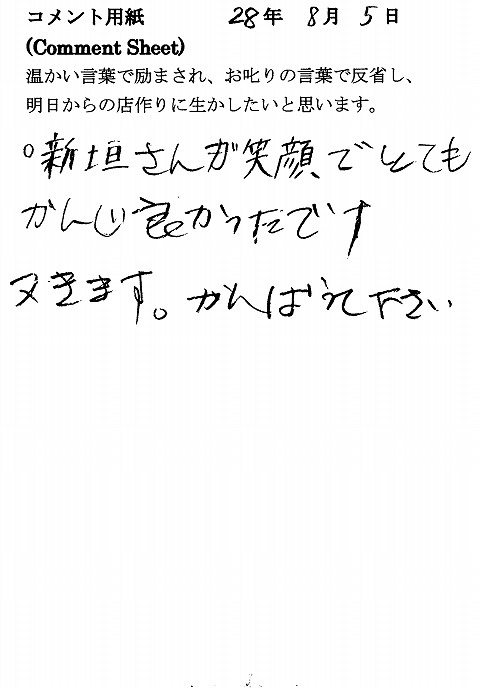 コメント用紙 28年 8月 5日
(Comment Sheet)
温かい言葉で励まされ、お叱りの言葉で反省し、
明日からの店作りに生かしたいと思います。
○新垣さんが笑顔でとても
かんじ良かったです
又きます。がんばって下さい